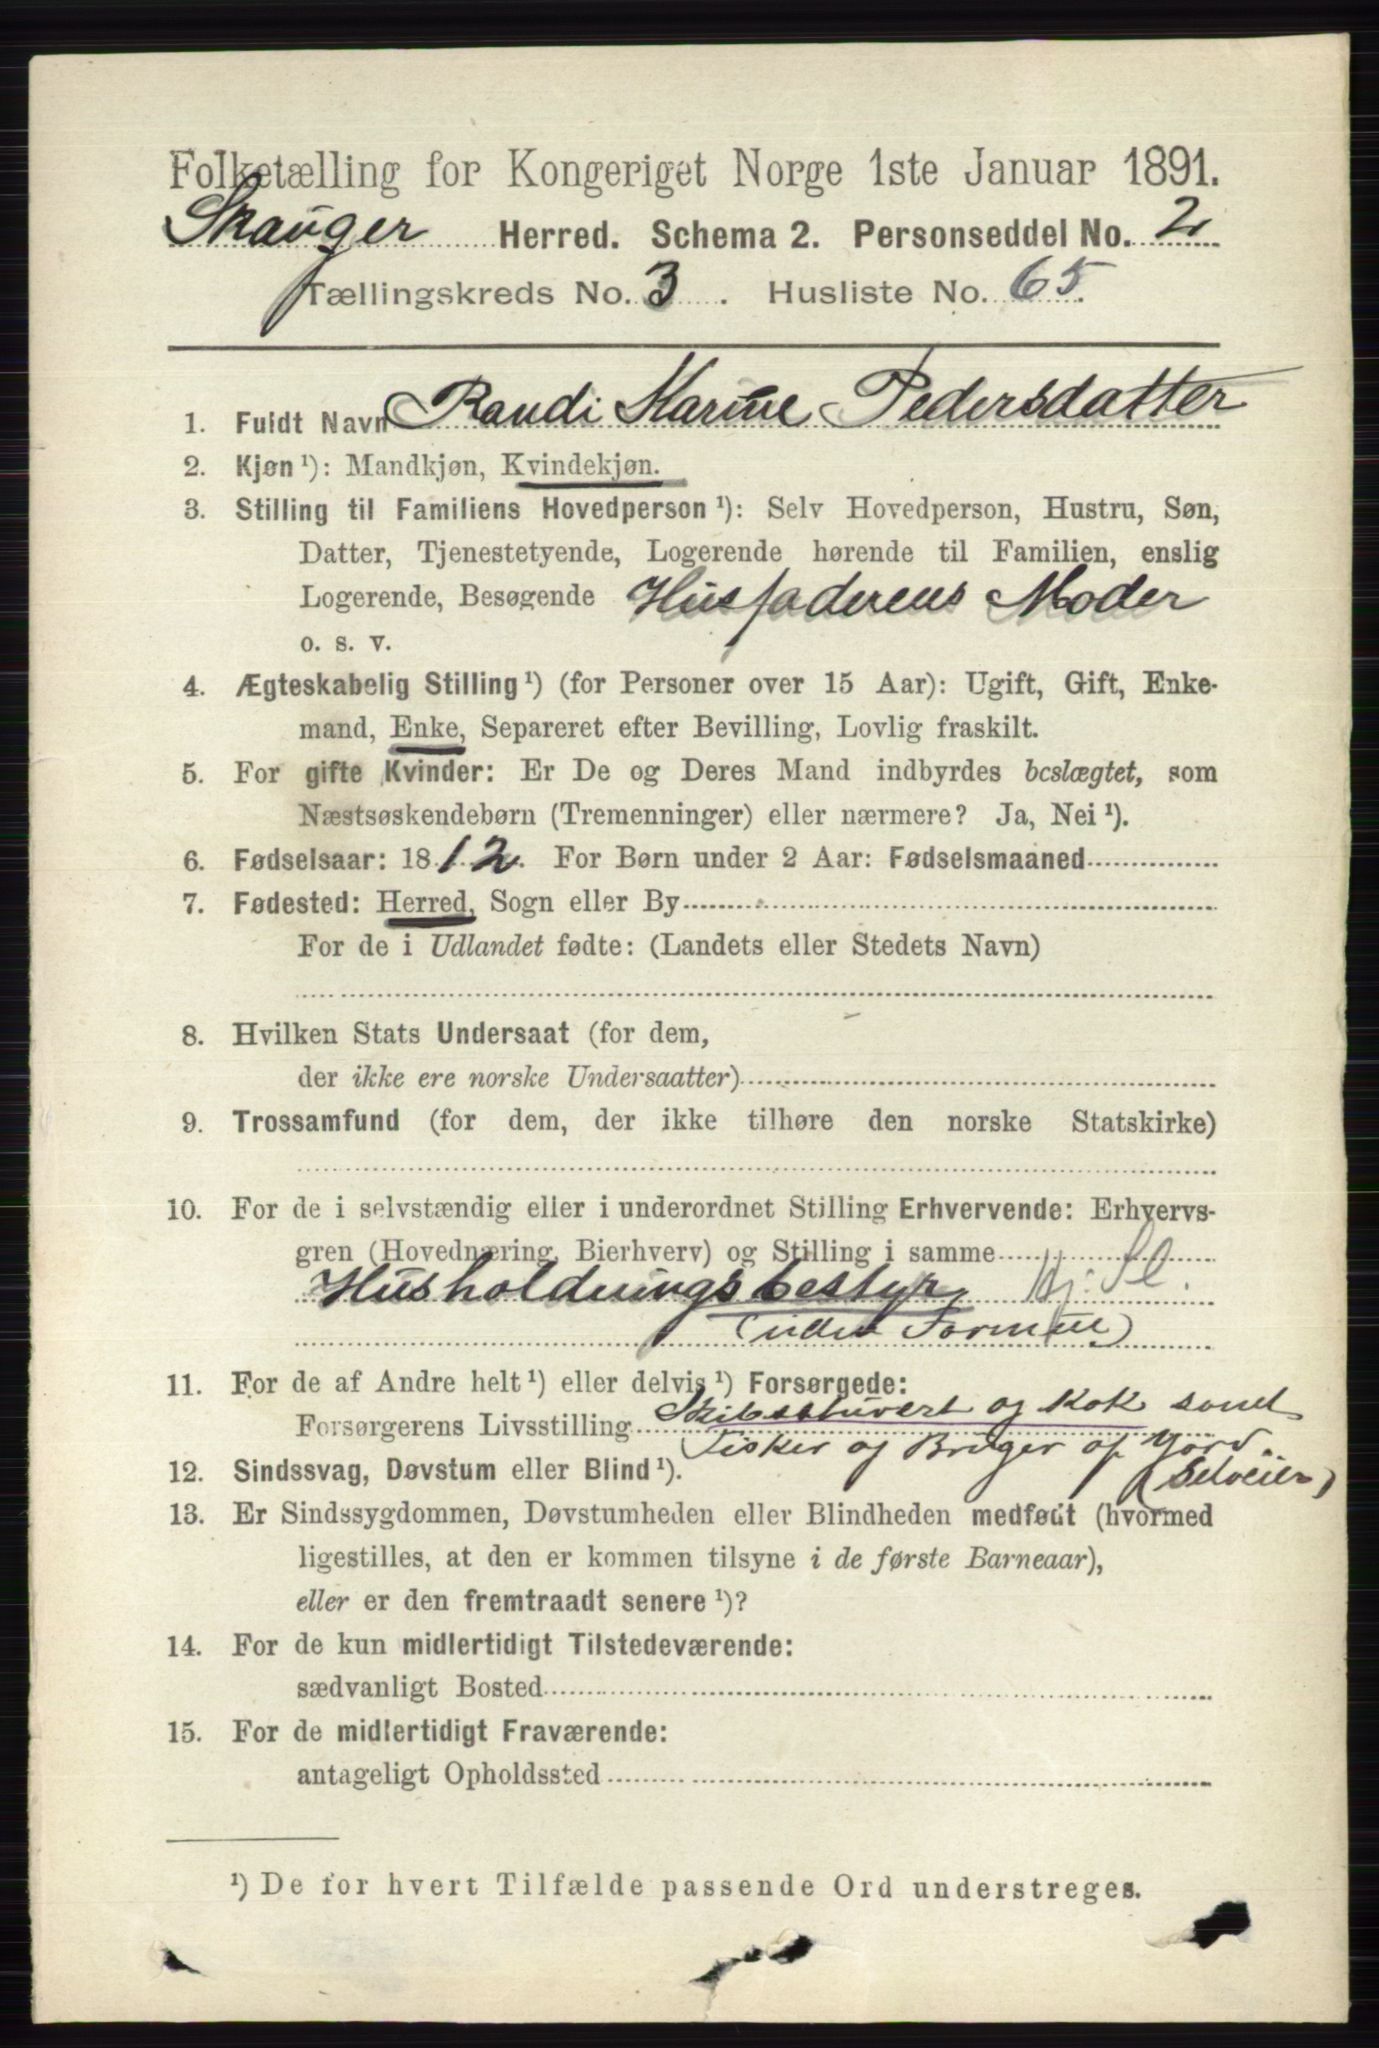 Folketælling for Kongeriget Norge 1ste Januar 1891.
Skauger Herred. Schema 2. Personseddel No. 2
Tællingskreds No. 3. Husliste No. 65.
1. Fuldt Navn Randi Marine Pedersdatter
2. Kjøn ¹): Mandkjøn, Kvindekjøn.
3. Stilling til Familiens Hovedperson ¹): Selv Hovedperson, Hustru, Søn,
Datter, Tjenestetyende, Logerende hørende til Familien, enslig
Logerende, Besøgende Husfaderens Moder
o. s. v.
4. Ægteskabelig Stilling ¹) (for Personer over 15 Aar): Ugift, Gift, Enke-
mand, Enke, Separeret efter Bevilling, Lovlig fraskilt.
5. For gifte Kvinder: Er De og Deres Mand indbyrdes beslægtet, som
Næstsøskendebørn (Tremenninger) eller nærmere? Ja, Nei ¹).
6. Fødselsaar: 1812. For Børn under 2 Aar: Fødselsmaaned
7. Fødested: Herred, Sogn eller By
For de i Udlandet fødte: (Landets eller Stedets Navn)
8. Hvilken Stats Undersaat (for dem,
der ikke ere norske Undersaatter)
9. Trossamfund (for dem, der ikke tilhøre den norske Statskirke)
10. For de i selvstændig eller i underordnet Stilling Erhvervende: Erhvervs-
gren (Hovednæring, Bierhverv) og Stilling i samme
Husholdningsbestyr,
(uden Formue)
11. For de af Andre helt ¹) eller delvis ¹) Forsørgede:
Forsørgerens Livsstilling Skibsstuvert og Kok samt
Fisker og Bruger af Jord.
(Selveier)
12. Sindssvag, Døvstum eller Blind ¹).
13. Er Sindssygdommen, Døvstumheden eller Blindheden medfødt (hvormed
ligestilles, at den er kommen tilsyne i de første Barneaar),
eller er den fremtraadt senere ¹)?
14. For de kun midlertidigt Tilstedeværende:
sædvanligt Bosted
15. For de midlertidigt Fraværende:
antageligt Opholdssted
¹) De for hvert Tilfælde passende Ord understreges.